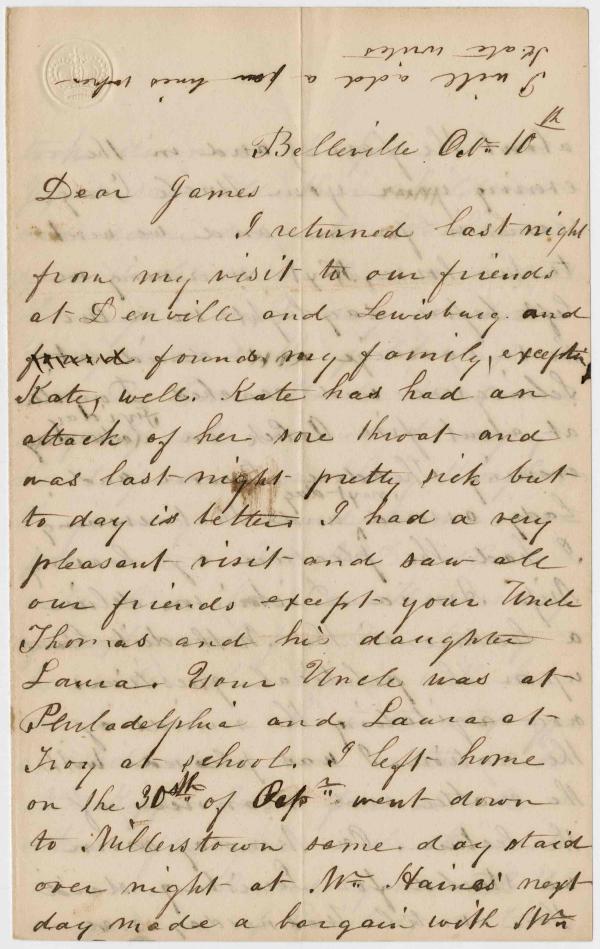 I will add a few lines when
Kate writes
Belleville Octr 10th
Dear James
I returned last night
from my visit to our friends
at Denville and Lewisburg and
found my family, except
Kate, well. Kate has had an
attack of her sore throat and
was last night pretty sick but
to day is better. I had a very
pleasant visit and saw all
our friends except your Uncle
Thomas and his daughter
Laura. Your Uncle was at
Philadelphia and Laura at
Troy at school. I left home
on the 30th of Sepr went down
to Millerstown same day staid
over night at Mr Haines next
day made a bargain with Wm